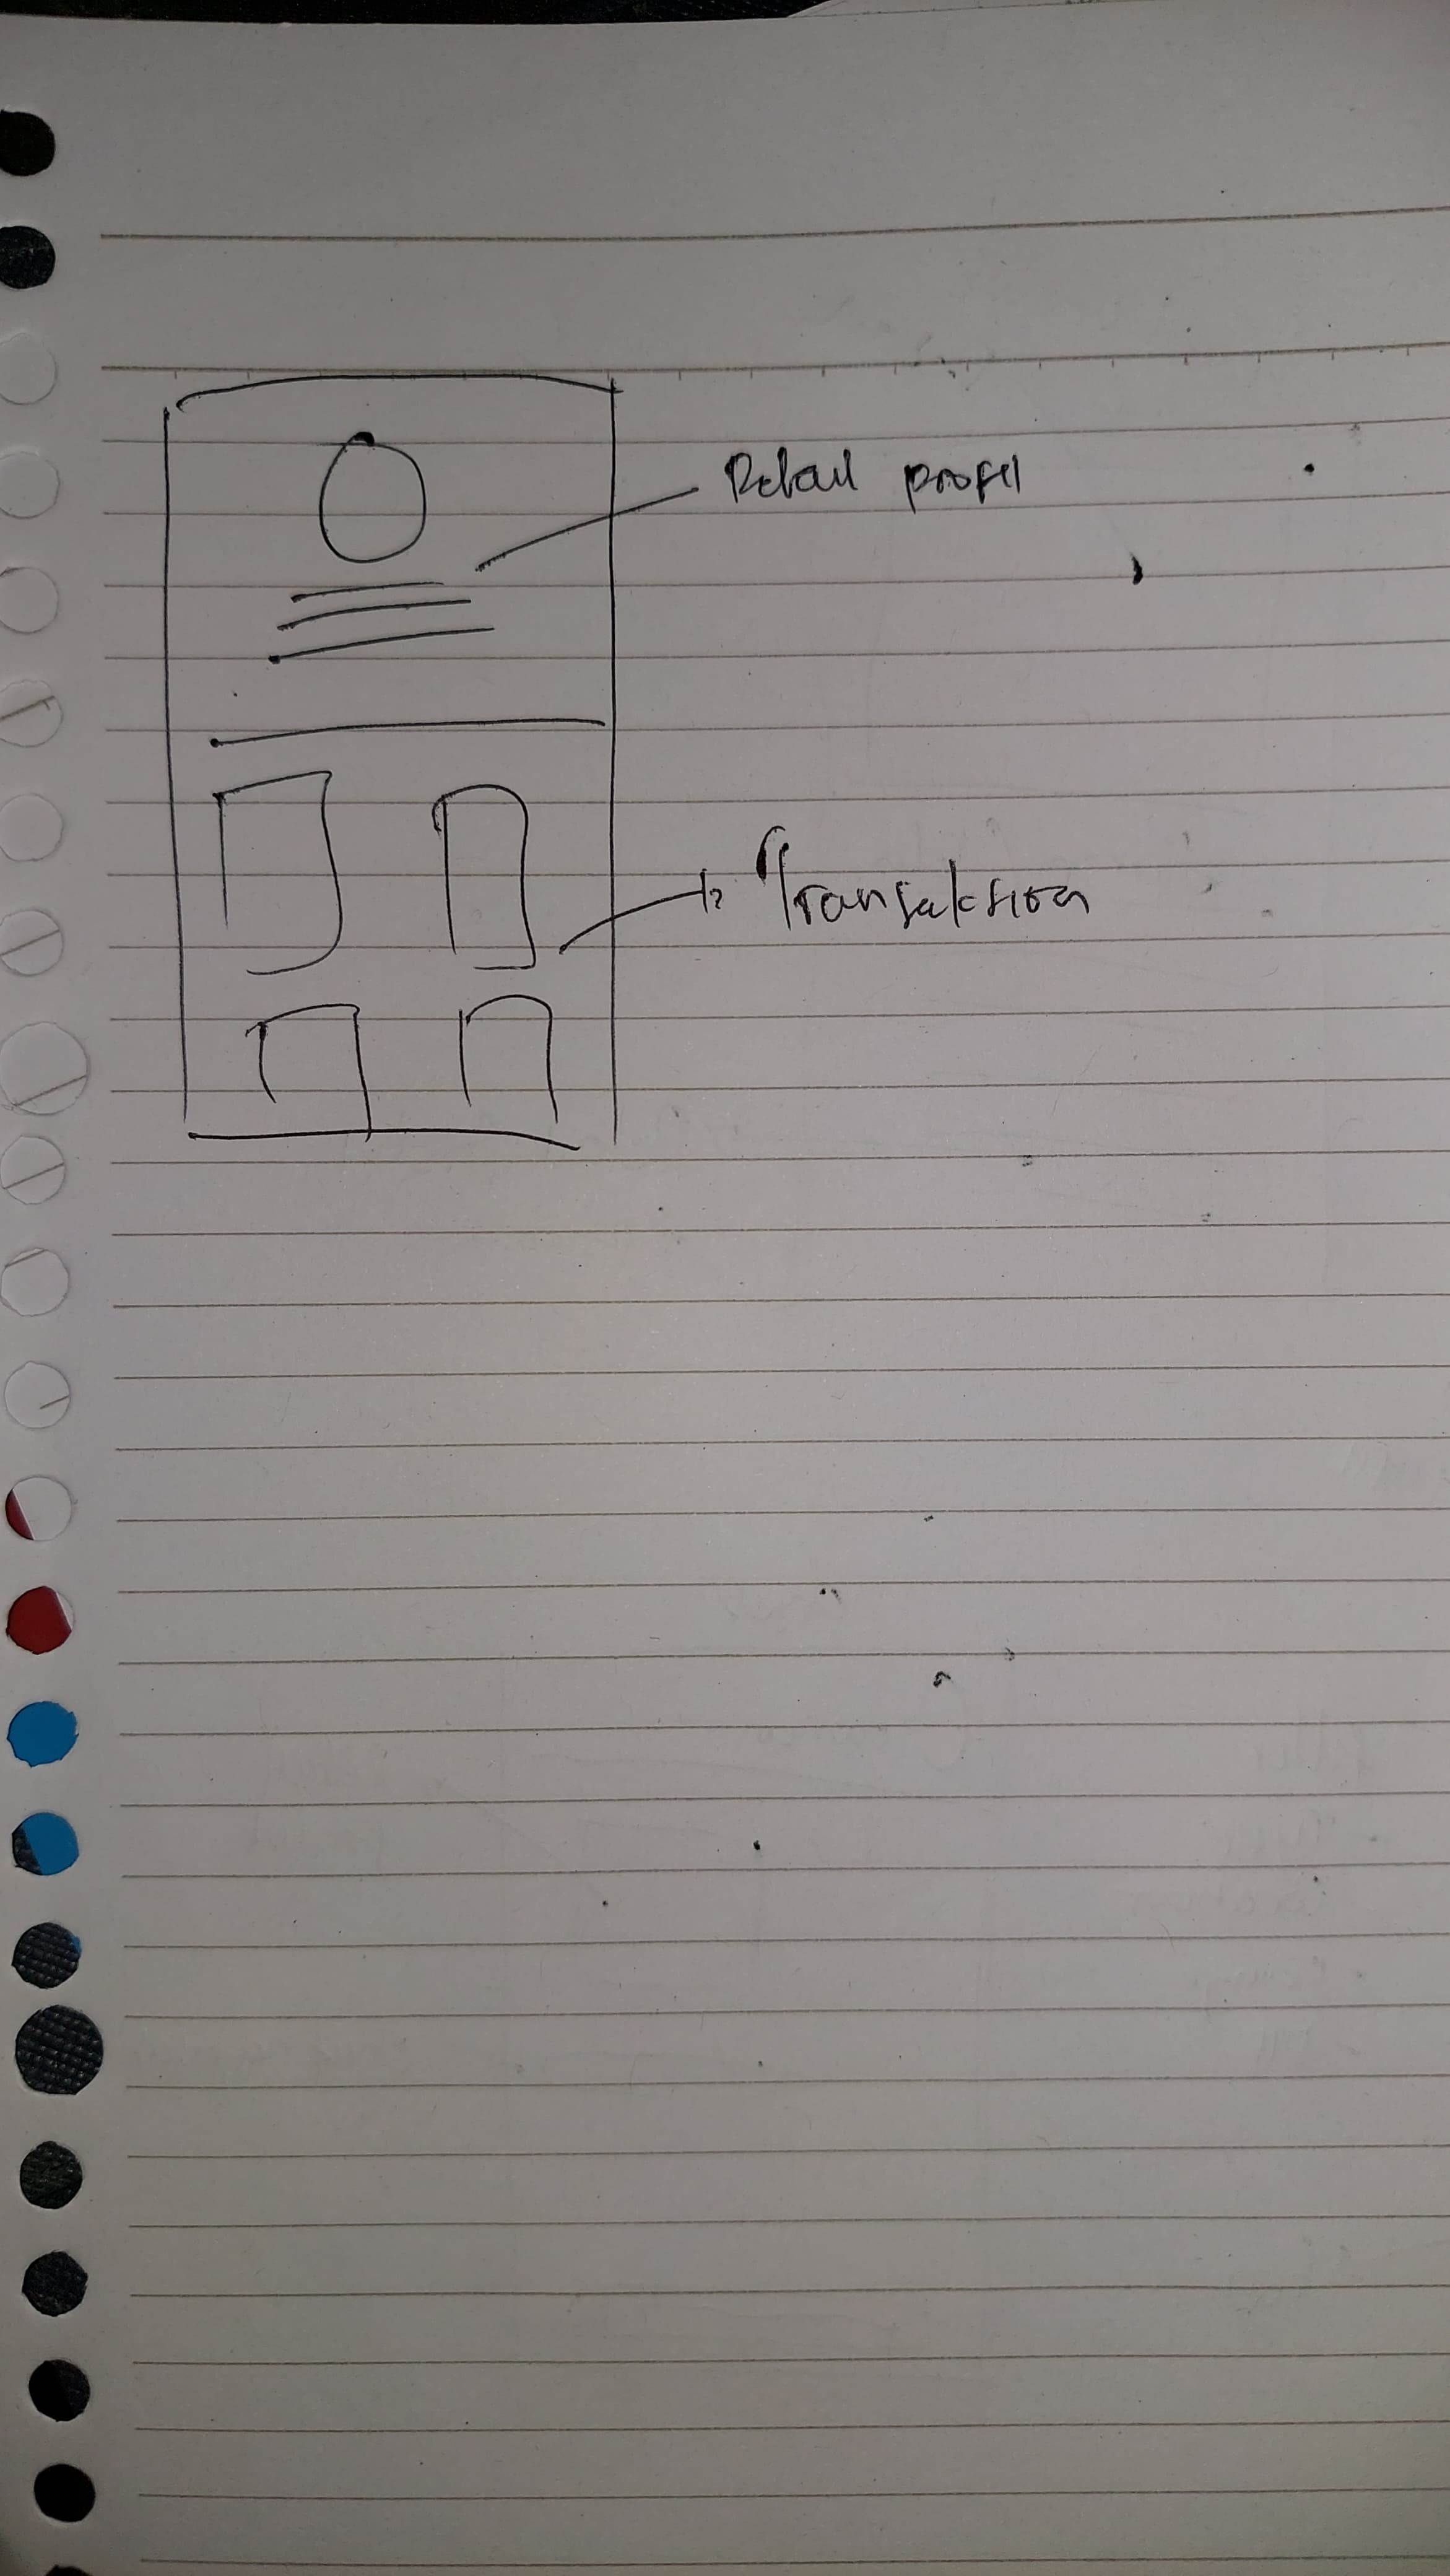 Detail profil
Transaksion